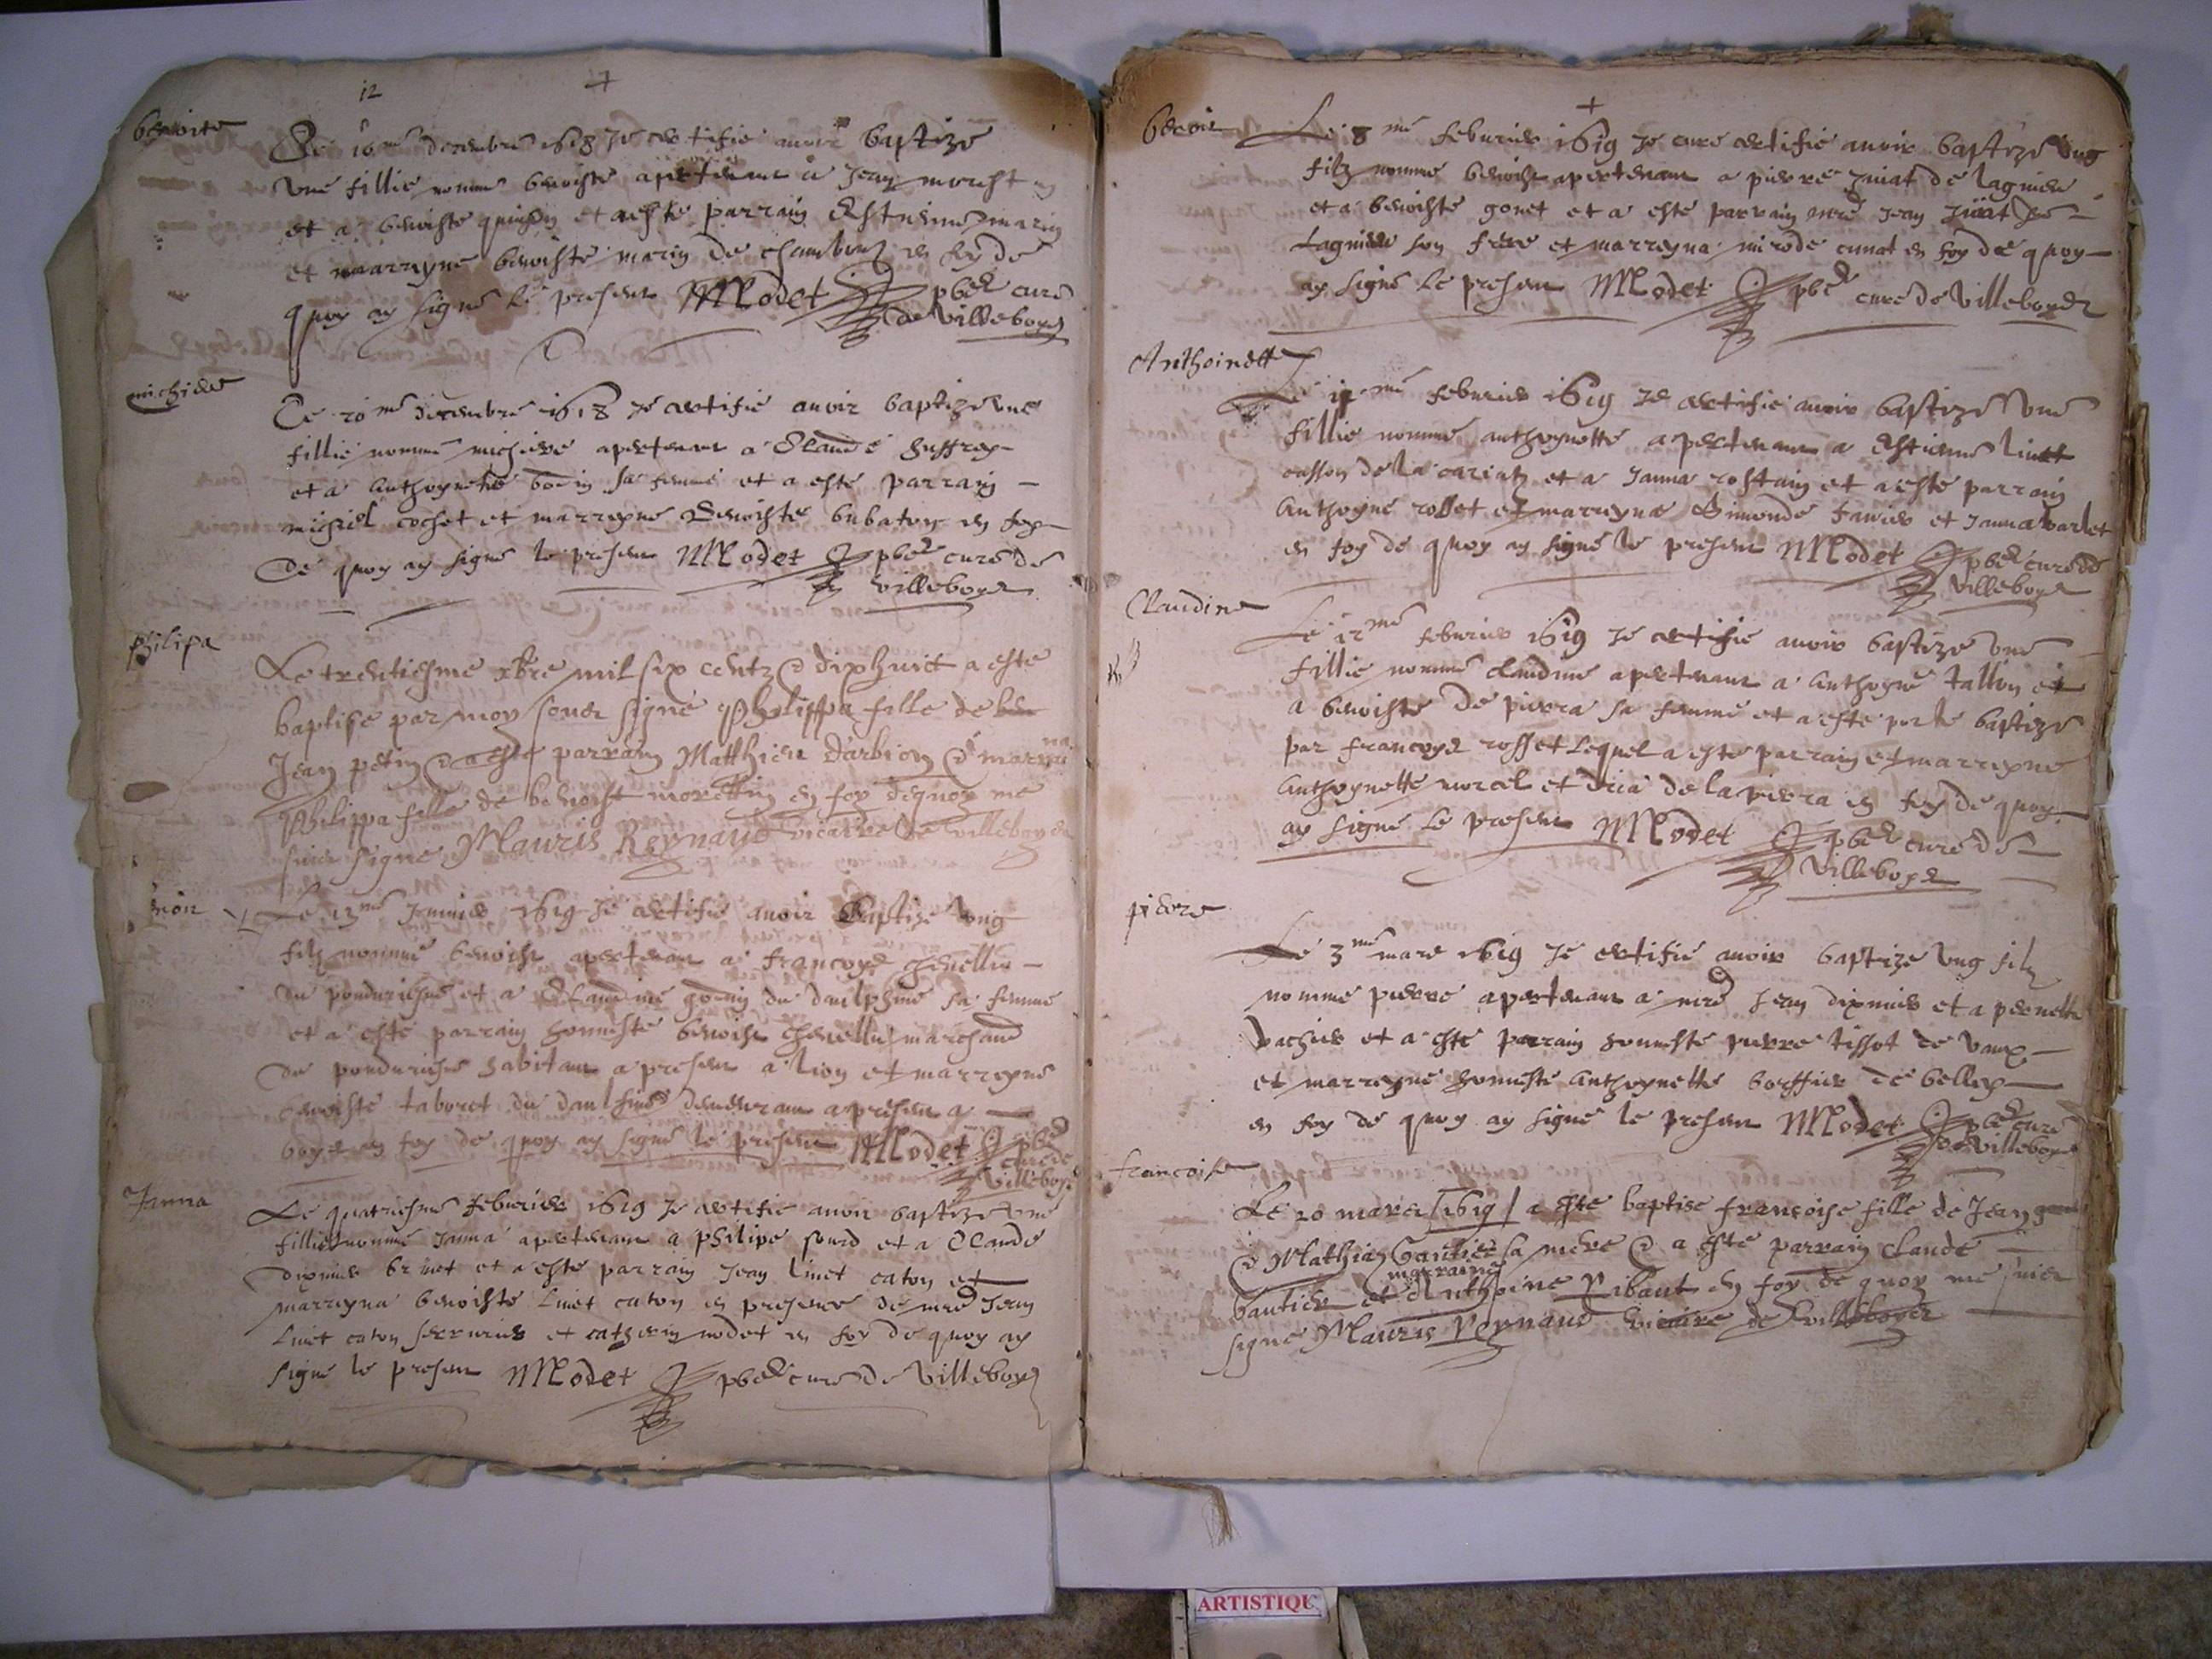 12
benoite
Ce 16me decembre 1618 Je certifie avoir baptizé
une fillie nomme benoiste apertenant a Jean
et a benoiste et a esté parrain Estienne marin
et marreyne benoiste marin de en foy de
quoy ay signé le present MModet pbr curé
de Villeboys
michiere
Ce 20me decembre 1618 Je certifie avoir baptizé une
fillie nommé michiere apertenant a Claude Suffrey
et a Anthoynette bovin sa femme et a esté parrain
michiel cochet et marreyne Benoiste bubaton en foy
de quoy ay signé le present MModet pbr curé de
Villeboys
philipa
Le trentiesme xbre mil six centz & dixhuict a este
baptise par moy soubz signé Philippa fille de
Jean petin & a esté parrain Matthieu Darbion & marrina
Philippa fille de benoist morettin en foy dequoy me
suis signe Mauris Reynaud vicaire de villeboys
Le 13me Janvier 1619 Je certifie avoir Baptizé ung
filz nommé benoist apertenant a francoys chevellu
du pondurieme et a Claudine du daulphiné sa femme
et a esté parrain honneste benoist chevellu marchand
du habitant a present a lion et marreyne
benoiste taboret du daulfiné demeurant a present a
boys en foy de quoy ay signé le present MModet pbr
curé de
Villeboys
Janna
Le quatriesme febvrier 1619 Je certifie avoir baptizé une
fillie nommé Janna apertenant a philipe sourd et a Claude
dixmier brunet et a esté parrain Jean livet caton et
marreyna benoiste livet caton en presence de mre Jean
livet caton serrurier et catherin modet en foy de quoy ay
signé le present MModet pbr curé de Villeboys
benoit
Le 8me febvrier 1619 Je curé certifie avoir baptizé ung
filz nommé benoist apertenant a pierre Juvat de lagnieu
et a benoiste gonet et a esté parrain mre Jean Juvat de
Lagnieu son frere et marreyna cunat en foy de quoy
ay signé le present MModet pbr curé de Villeboys
Anthoinette
Le 11me febvrier 1619 Je certifie avoir baptizé une
fillie nommé anthoynette apertenant a Estienne livet
de la et a Janna rostain et a esté parrain
Anthoyne rosset et marreyna Simonde Janvier et Janna varlet
en foy de quoy ay signé le present MModet pbr curé de
Villeboys
Claudine
Le 12me febvrier 1619 Je certifie avoir baptizé une
fillie nommé claudine apertenant a Anthoyne tallon et
a benoiste De pierra sa femme et a esté porté baptizé
par francoys rosset Lequel a esté parrain et marreyne
Anthoynette morcel et de la pierra en foy de quoy
ay signé le present MModet pbr curé de
Villeboys
pierre
Le 3me mars 1619 Je certifie avoir baptizé ung filz
nommé pierre apertenant a mre Jean dixmier et a pernette
vachier et a esté parrain honneste pierre tissot de vaux
et marreyne honneste Anthoynette de belley
en foy de quoy ay signé le present MModet pbr curé
de Villeboys
francoise
Le 20 mars 1619 a esté baptise françoise fille de Jean
& Mathia Gautier sa mere & a esté parrain claude
bautier et marraine Anthoine Ribaut en foy de quoy me suis
signe Mauris Reynaud vicaire de Villeboys
ARTISTIQU